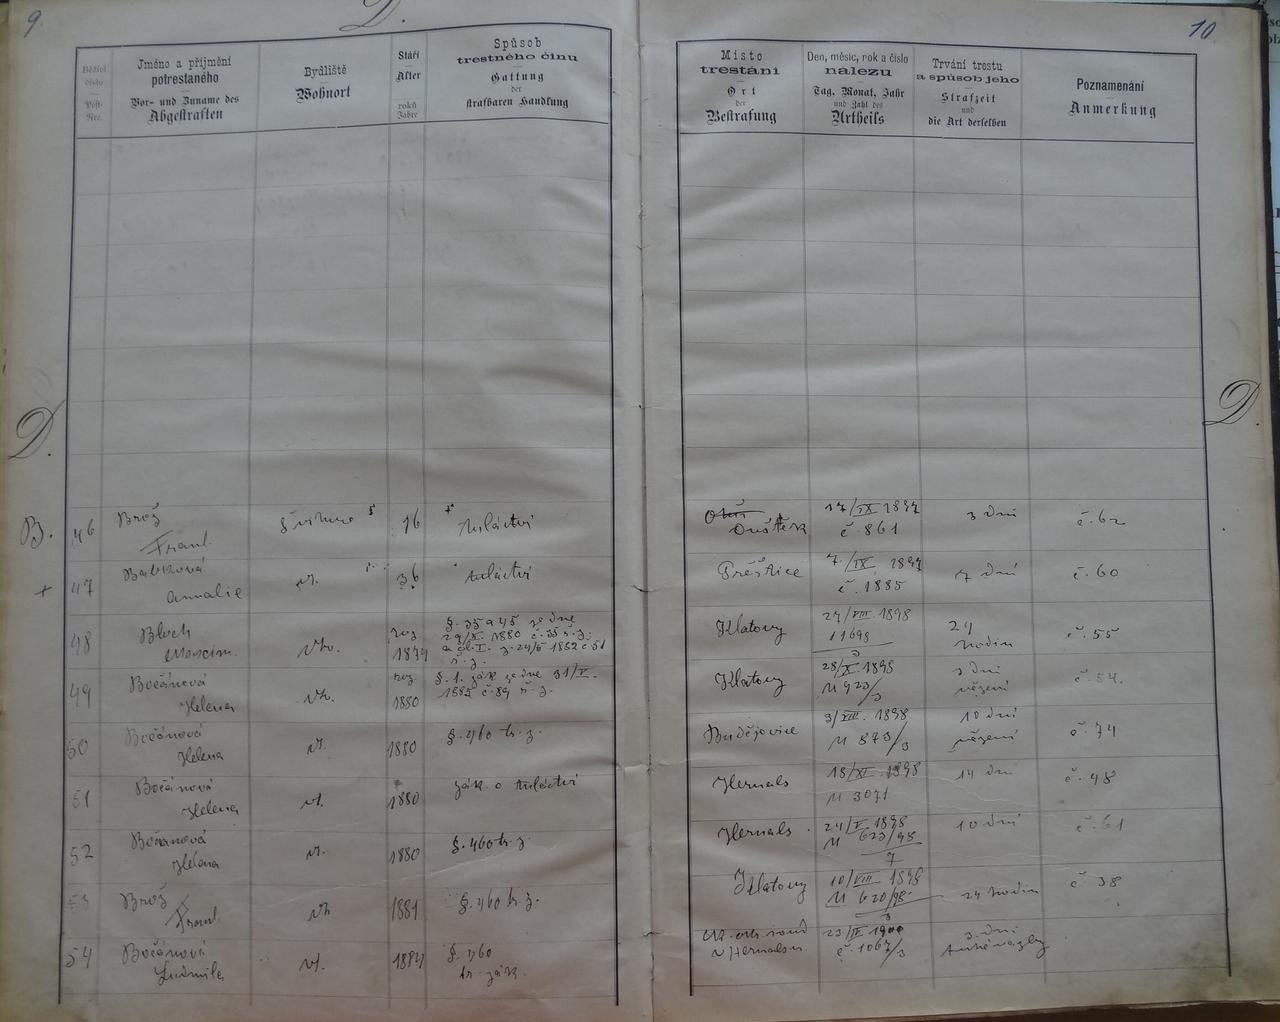 9.
D.
10
Běžící číslo
Post-Nro.
Jméno a příjmění
potrestaného
Vor- und Zuname des
Abgestraften
Bydliště
Wohnort
Stáří
Alter
roků
Jahre
Spůsob
trestného činu
Gattung
der
strafbaren Handlung
Místo
trestání
Ort
der
Bestrafung
Den, měsíc, rok a číslo
nálezu
Tag, Monat, Jahr
und Zahl des
Urtheils
Trvání trestu
a spůsob jeho
Strafzeit
und
die Art derselben
Poznamenání
Anmerkung
D.
D.
B. 46 Brož Frant. 16 tuláctví
17/IX 1897 č. 861 3 dní č. 62
+ 47 Annalie 36 tuláctví
Přeštice 7./IX 1897 č. 1885 7 dní č. 60
48 Bloch roz. 1874 §. 35 a 45 ze dne
1880
Klatovy 27/VIII 1898 11698/3 24 hodin č. 55
49 Bočánová Helena vh. roz. 1880 §. 1. zák. ze dne 31/V.
1885 č. 89 ř. z.
Klatovy 28/X 1898 U 923/3 3 dní vězení č. 54.
50 Bočánová Helena 1880 §. 460 tr. z.
Budějovice 3/VIII. 1898 U 873/3 10 dní vězení č. 74
51 Bočánová Helena 1880 zák. o tuláctví
Hernals 18/XI 1898 U 3071 14 dní č. 48
52 Bočánová Helena 1880 §. 460 tr. z.
Hernals 24/V 1898 U 623/98/7 10 dní č. 61
53 Brož Frant. vh 1881 §. 460 tr. z.
Klatovy 10/VIII 1898 U 620/98/3 24 hodin č. 38
54 Bočánová Ludmila §. 460
tr. zák.
v Hernalsu 23/IV 1900 č. 1067/3 3 dní